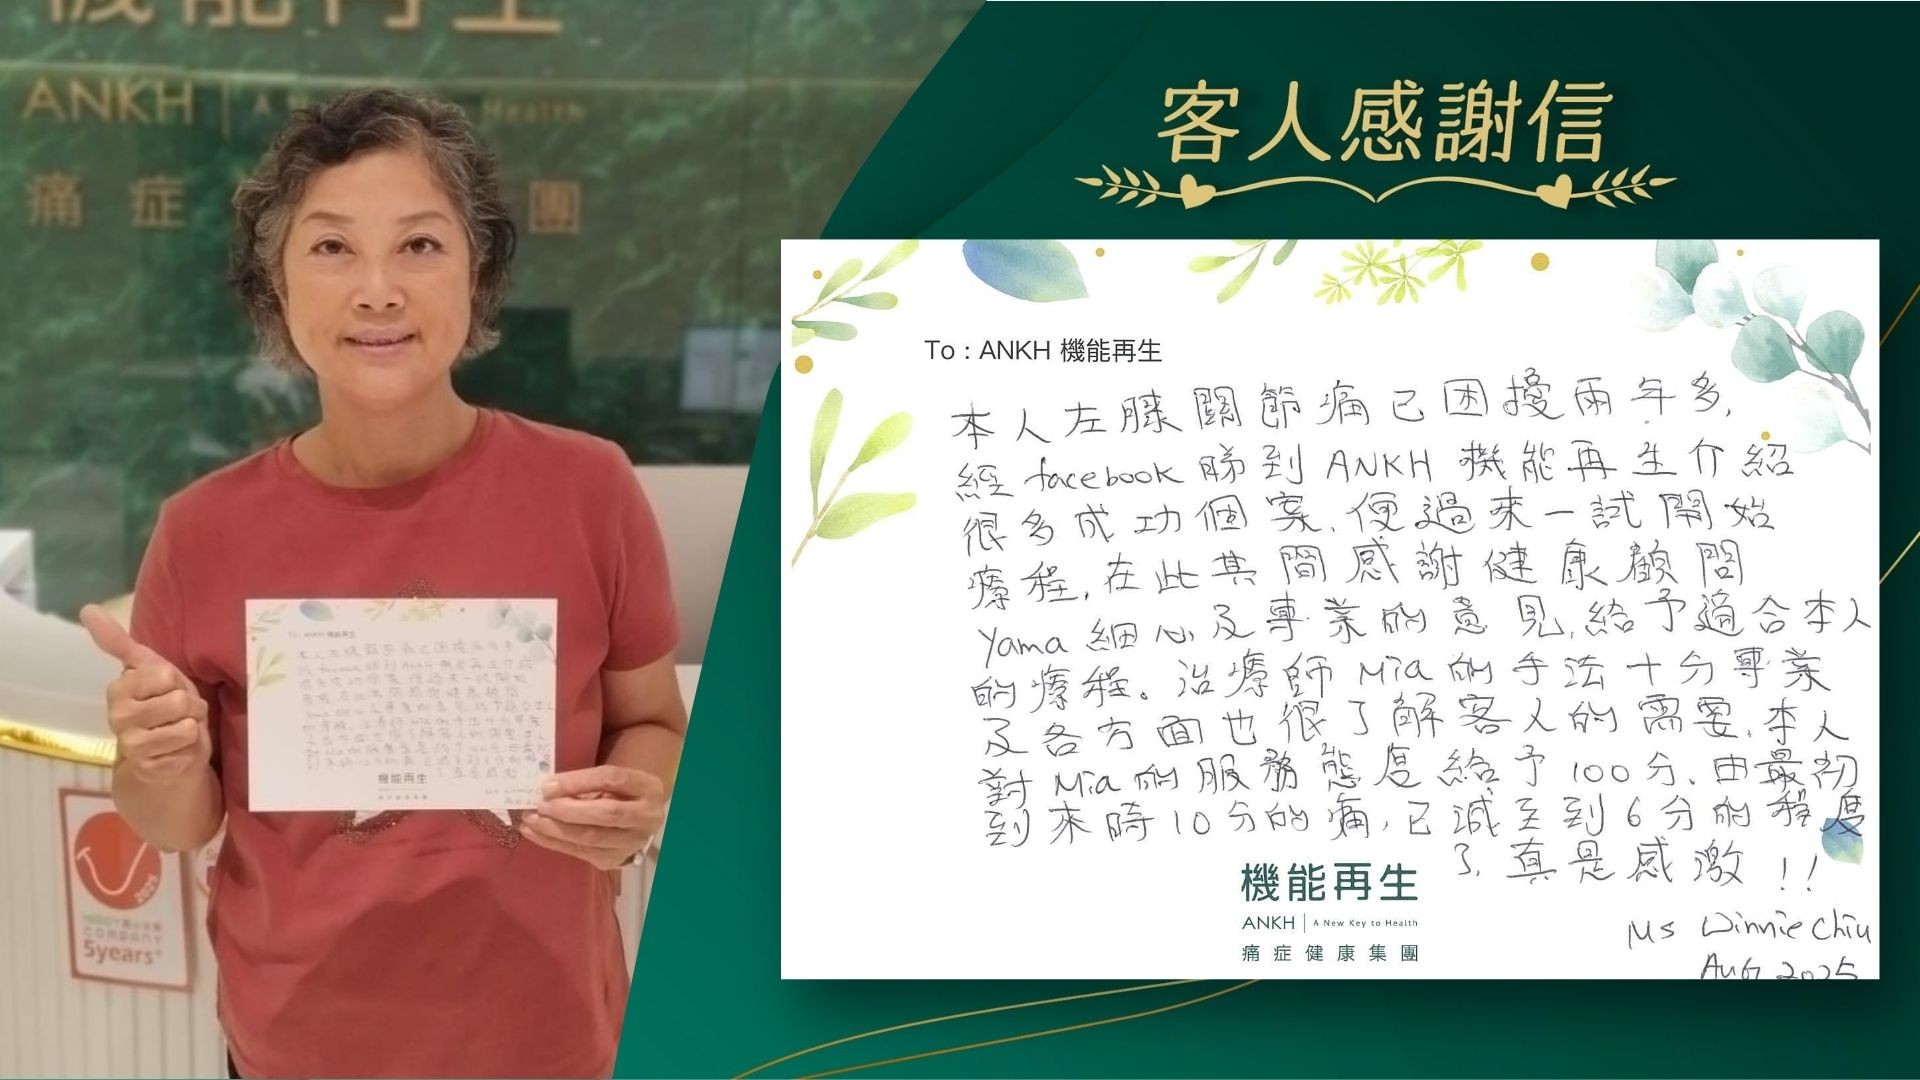 機能再生
ANKH
痛症 集團
客人感謝信
To : ANKH 機能再生
本人左膝關節痛已困擾兩年多,
經 facebook 睇到 ANKH 機能再生介紹
很多成功個案, 便過來一試開始
療程, 在此其間感謝健康顧問
Yama 細心及專業的意見, 給予適合本人
的療程。治療師 Mia 的手法十分專業
及各方面也很了解客人的需要, 本人
對 Mia 的服務態度給予 100 分, 由最初
到來時 10 分的痛, 已減至到 6 分的程度
了, 真是感激!!
機能再生
ANKH | A New Key to Health
痛症健康集團
Ms Winnie Chiu
Aug 2025
2025
COMPANY
5years+